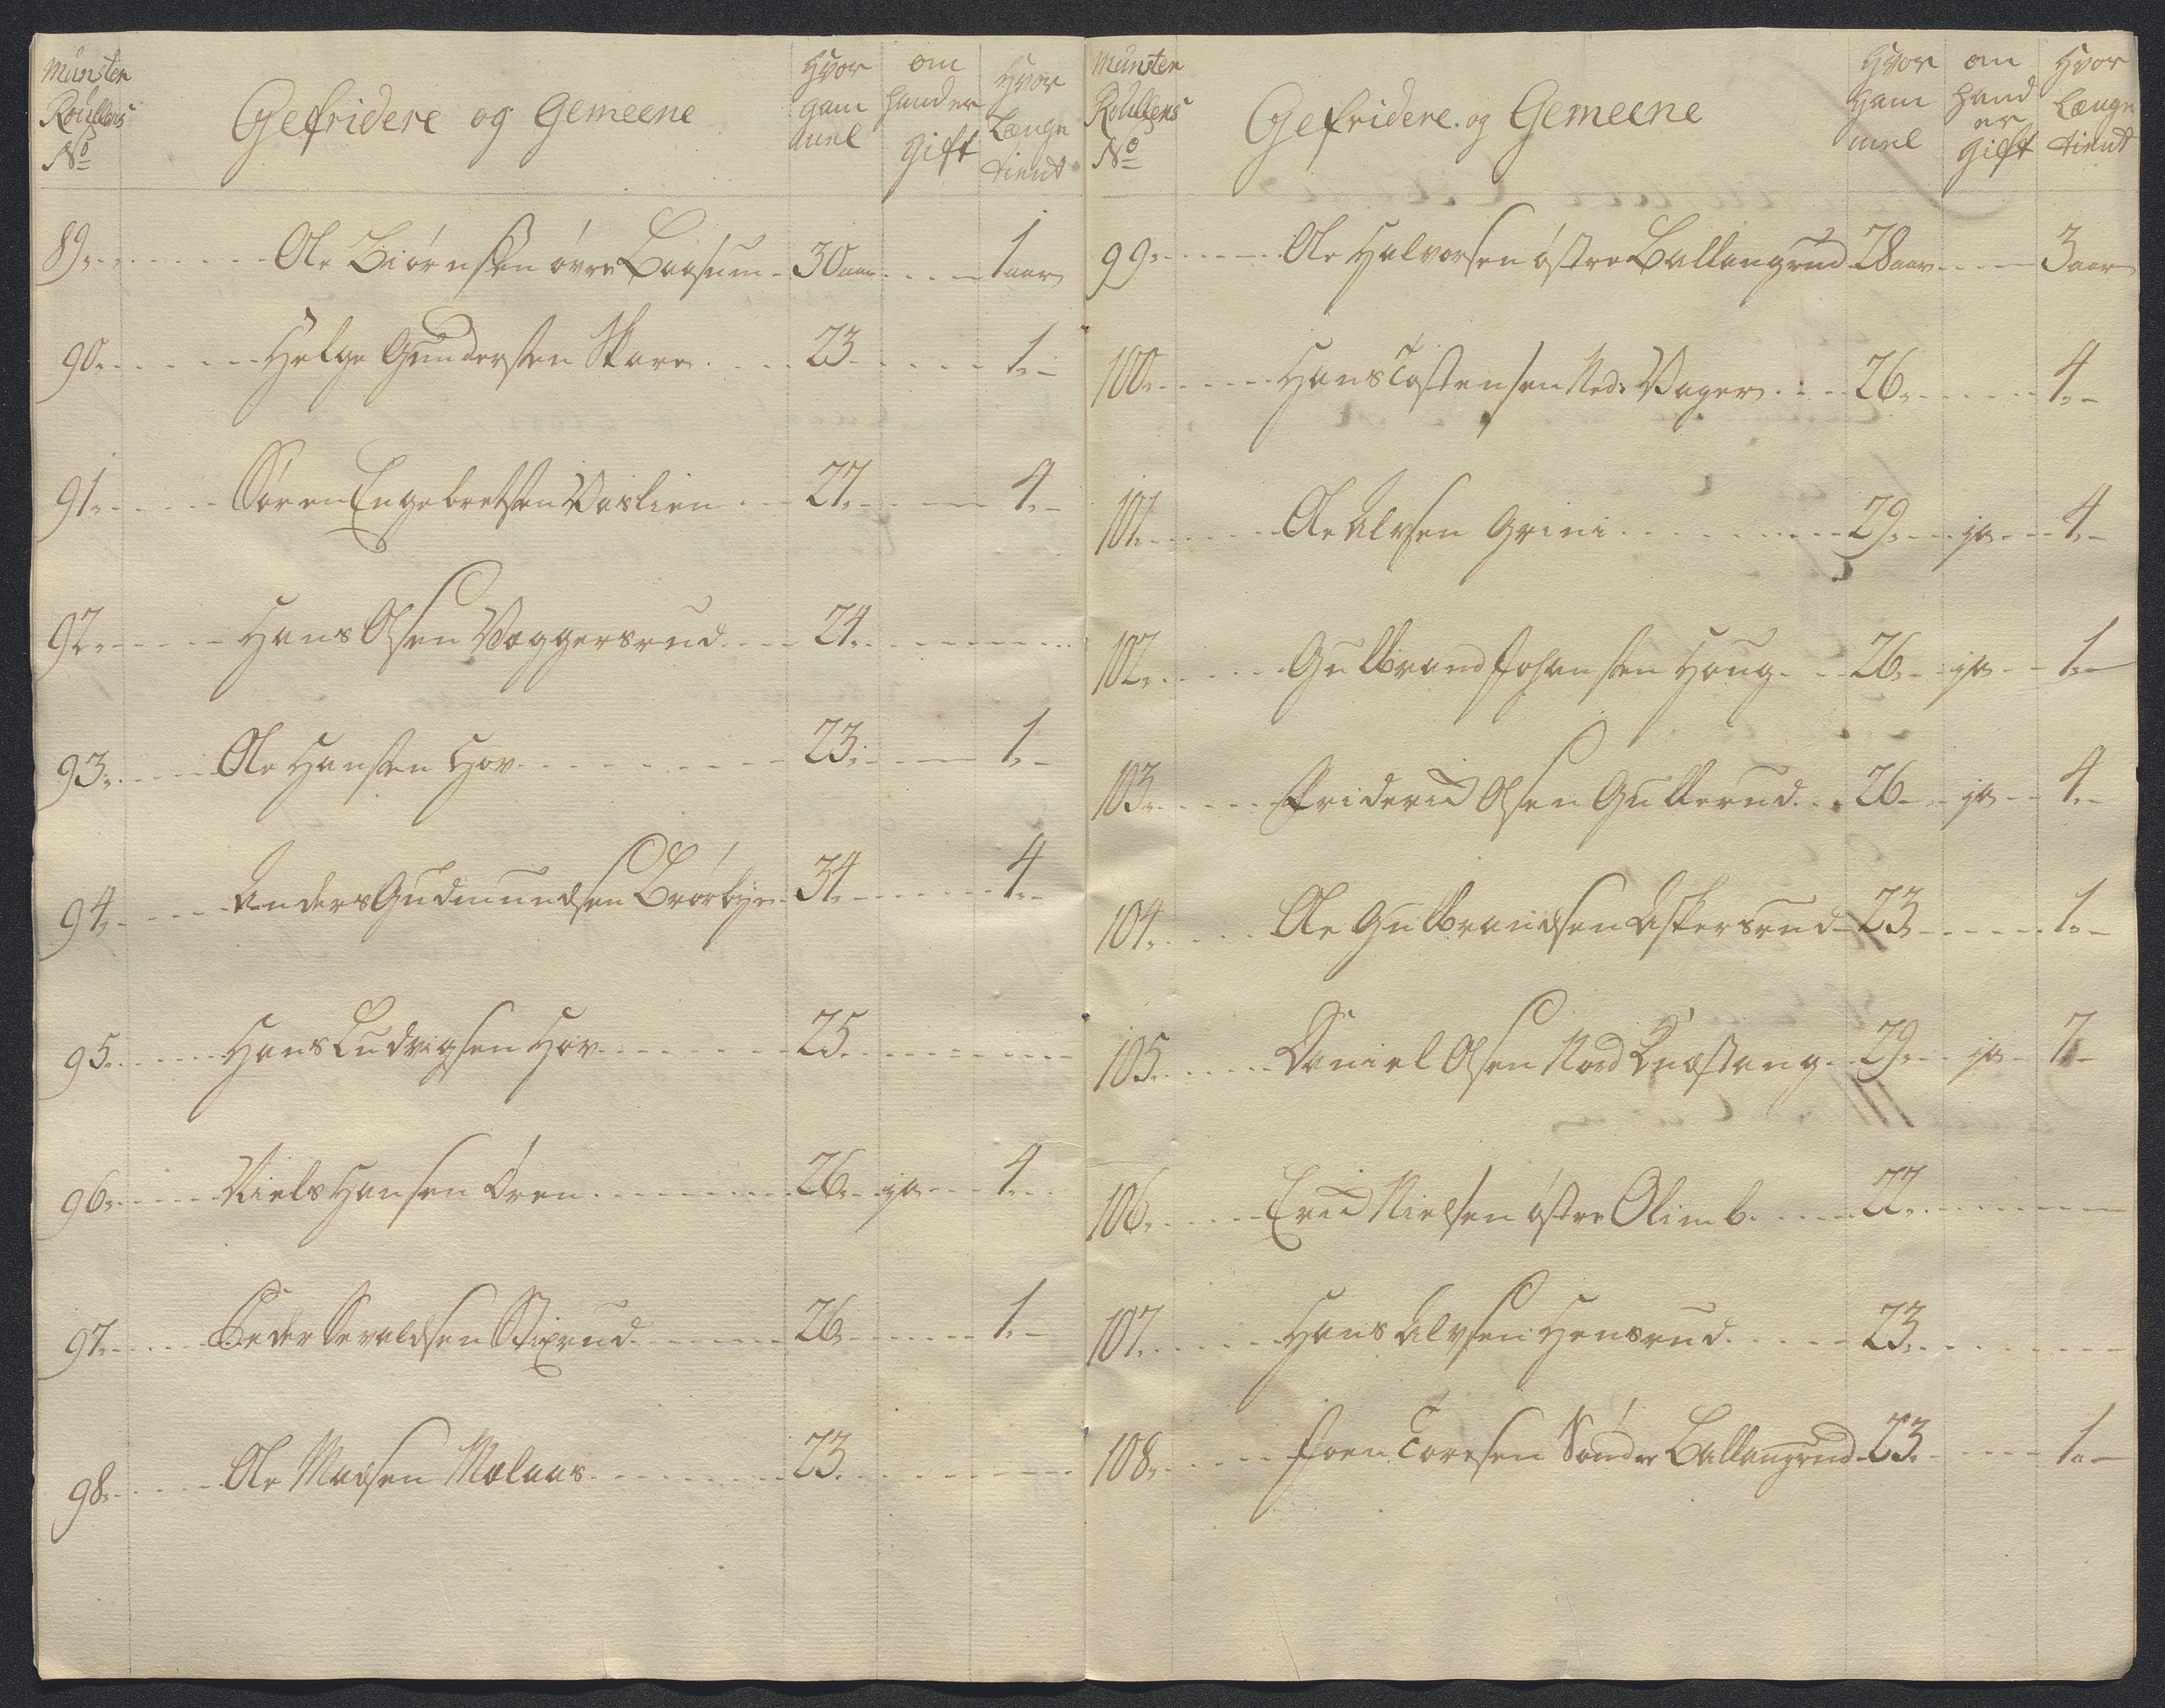 Münster Roullens No
Gefridere og Gemeene
Hvor gam mel
om hand er Gift
Hvor Længe tient
89. Ole Biørnsen øvre Baasum 30 aar 1 aar
90. Helge Gundersen Skare 23 1.
91. Søren Engebretsen Vaslien 27. 4.
92. Hans Olsen Væggersrud 24.
93. Ole Hansen Hov 23. 1.
94. Anders Gudmundsen Brørbye 34. 4.
95. Hans Ludvigsen Hov 25.
96. Niels Hansen Øren 26. ja 4.
97. PederEvaldsen Stixrud 26. 1.
98. Ole Madsen Molaas 23.
Münster Roullens No
Gefridere og Gemeene
Hvor Gam mel
om Hand er Gift
Hvor Længe tient
99. Ole Halvorsen østre Ballangrud 28 aar 3 aar
100. Hans Tostensen Ned: Vager 26. 4.
101. Ole Alvsen Grini 29. ja 4.
102. Gulbrand Johansen Houg 26. ja 1.
103. Friderich Olsen Gullerud 26 ja 4.
104. Ole Gulbrandsen Askersrud 23 1.
105. Daniel Olsen Nord Knæstang 29. ja 7.
106. Erich Nielsen østre Olimb. 22.
107. Hans Alvsen Hensrud 23.
108. Joen Toresen Sønder Ballangrud 23. 1.